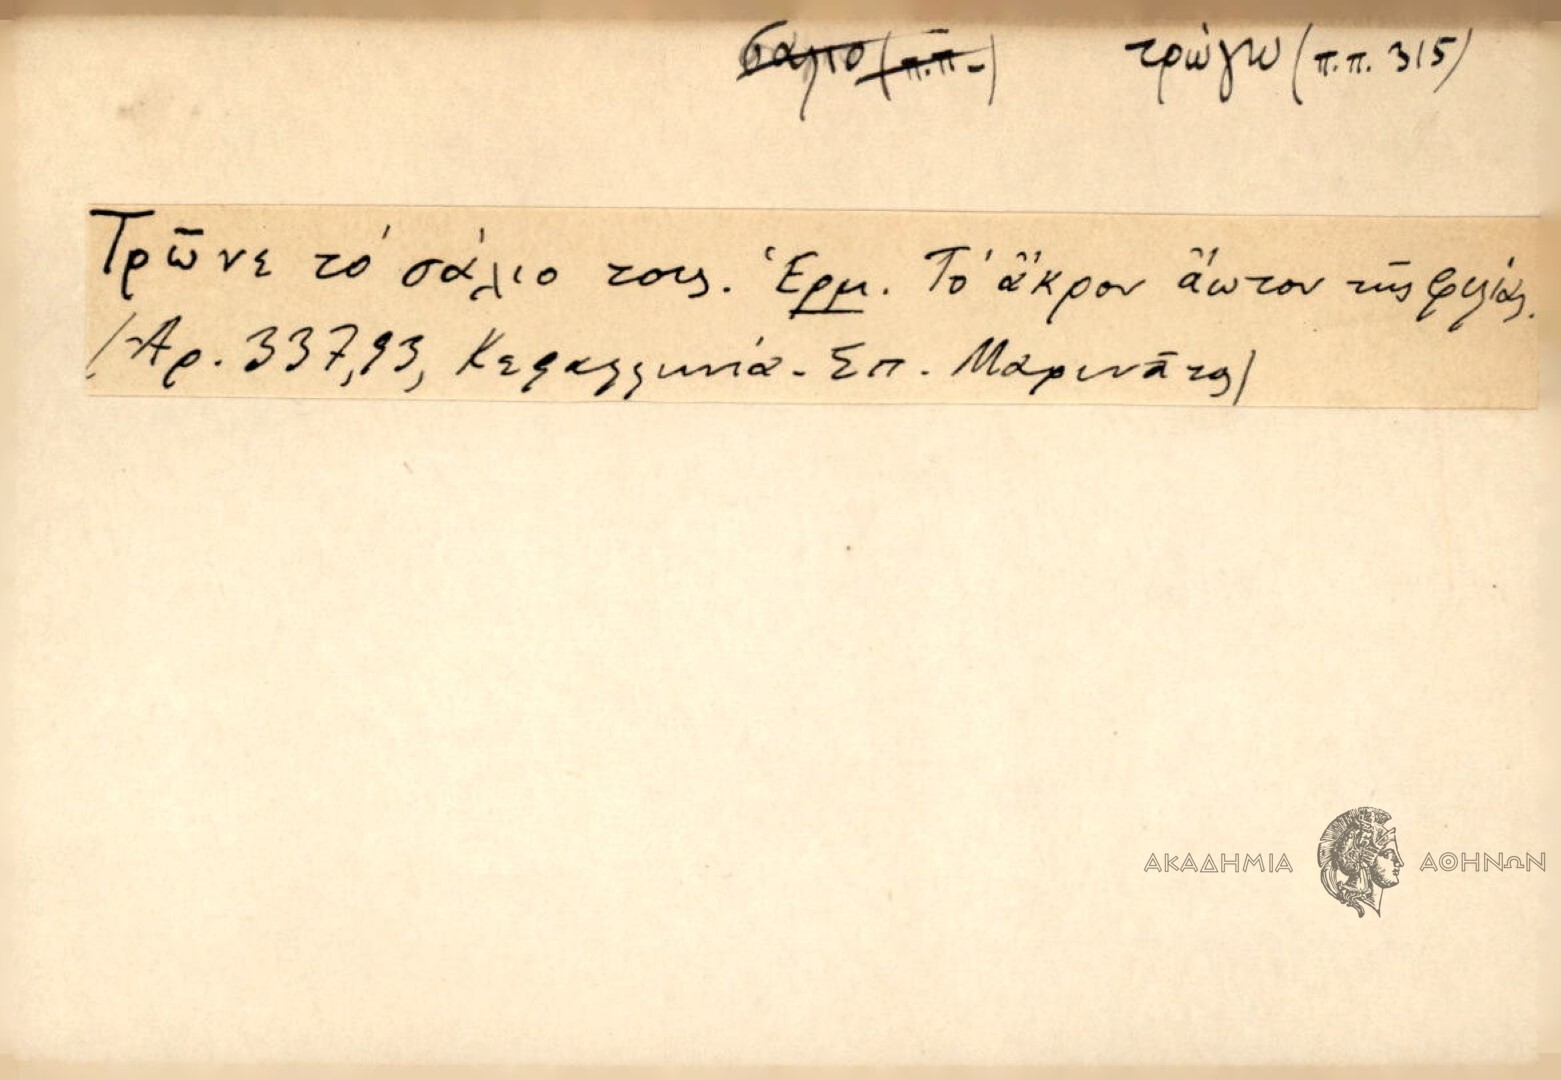 σάλιο (π.π. -) τρώγω (π.π. 315)
Τρῶνε τό σάλιο τους. Ἑρμ. Τό ἄκρον ἄωτον τῆς φιλίας.
(Ἀρ. 337,93, Κεφαλληνία - Σπ. Μαρινᾶτος)
ΑΚΑΔΗΜΙΑ ΑΘΗΝΩΝ